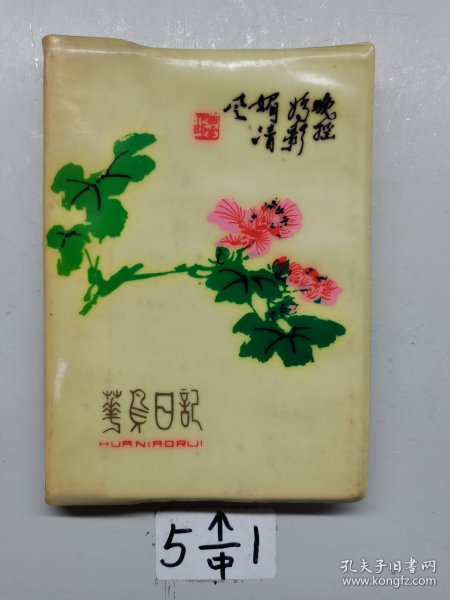 晚摇
娇影
媚清
风
華鳥日記
HUANIAORIJI
5 ↑中 1
孔夫子旧书网
www.kongfz.com